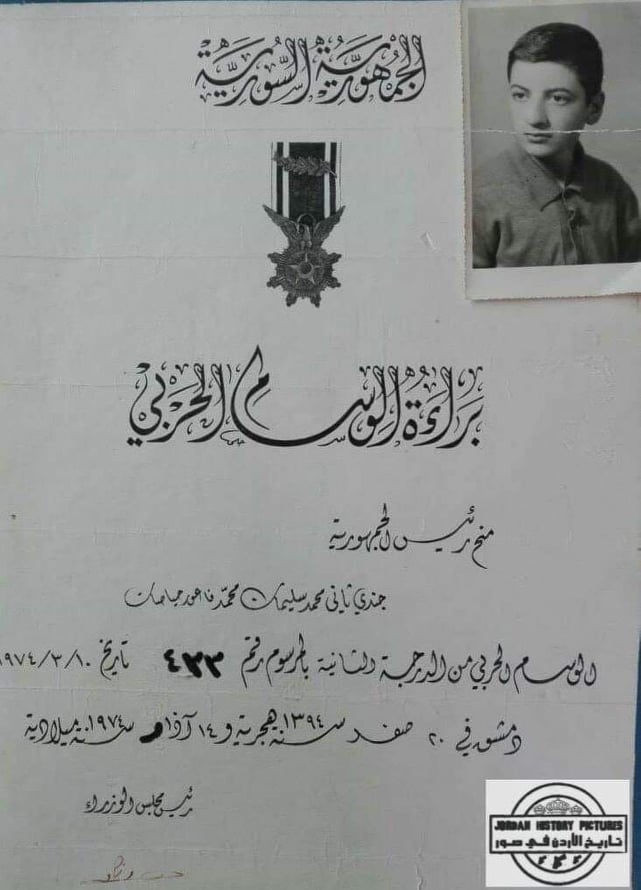 الجمهورية السورية
براءة الوسام الحربي
منح رئيس الجمهورية
جندي ثاني محمد سليمان محمد
الوسام الحربي من الدرجة الثانية بالمرسوم رقم ٤٣٣ تاريخ ١٩٧٤/٣/١٠
دمشق في ٢٠ صفر سنة ١٣٩٤ هجرية و ١٤ آذار سنة ١٩٧٤ ميلادية
رئيس مجلس الوزراء
JORDAN HISTORY PICTURES
تاريخ الأردن في صور